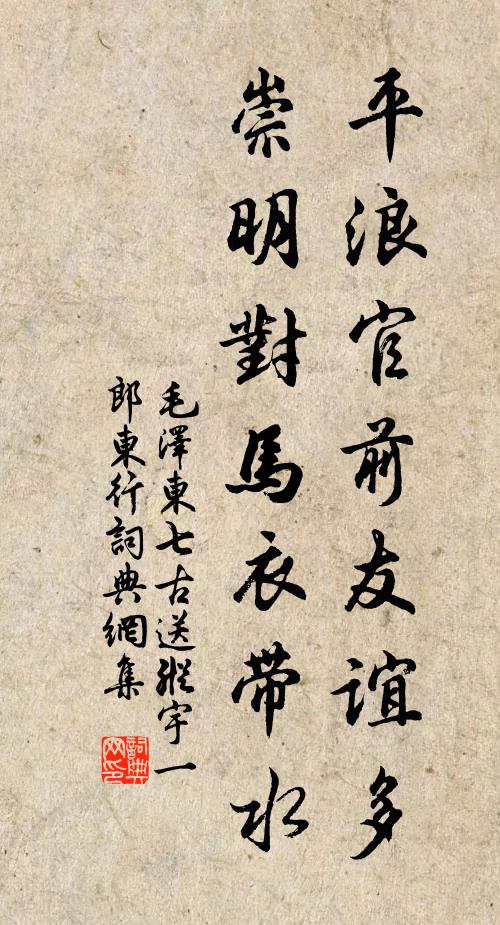 平浪官前友誼多
崇明對馬衣帶水
毛澤東七古送縱宇一
郎東行詞典網集
詞典網印